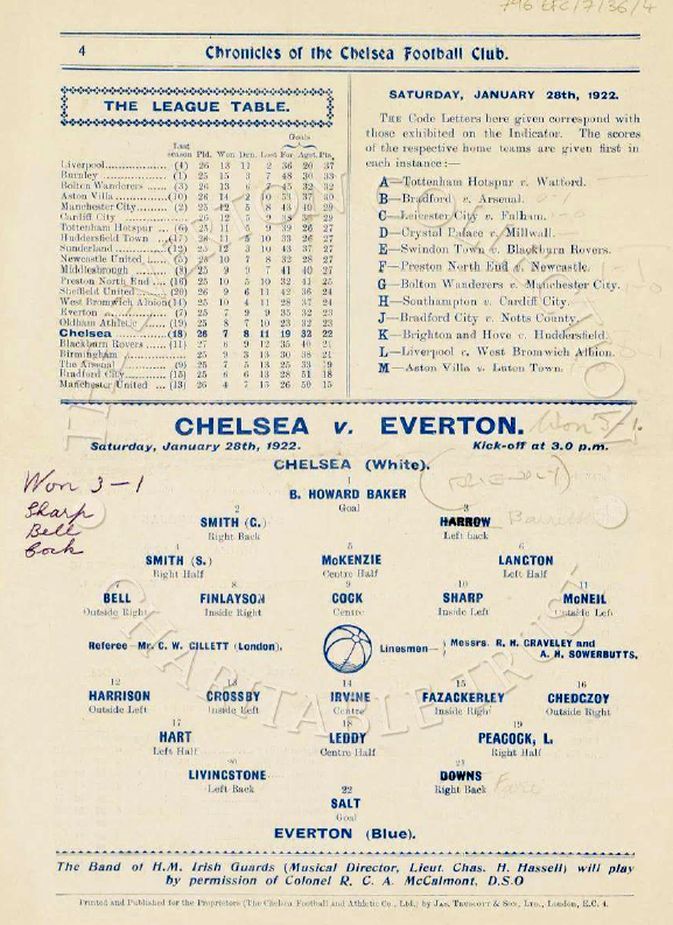 796 EFC/7/36/4
4
Chronicles of the Chelsea Football Club.
THE LEAGUE TABLE.
Goals
Last season Pld. Won Drn. Lost For Agst. Pts.
Liverpool (4) 26 13 11 2 36 20 37
Burnley (1) 25 15 3 7 48 30 33
Bolton Wanderers (3) 26 13 6 7 45 32 32
Aston Villa (10) 26 14 2 10 53 37 30
Manchester City (2) 25 12 5 8 43 40 29
Cardiff City 26 12 5 9 38 29
Tottenham Hotspur (6) 25 11 5 9 39 26 27
Huddersfield Town (17) 26 11 5 10 33 26 27
Sunderland (12) 25 12 3 10 43 37 27
Newcastle United (5) 25 10 7 8 32 28 27
Middlesbrough (8) 25 9 9 7 41 40 27
Preston North End (16) 25 10 5 10 32 41 25
Sheffield United (20) 26 9 6 11 42 36 24
West Bromwich Albion (14) 25 10 4 11 28 37 24
Everton (7) 25 7 9 9 35 32 23
Oldham Athletic (19) 25 8 7 10 23 32 23
Chelsea (18) 26 7 8 11 19 32 22
Blackburn Rovers (11) 27 6 9 12 35 40 21
Birmingham 25 9 3 13 30 38 21
The Arsenal (9) 25 7 5 13 25 33 19
Bradford City (15) 25 6 6 13 28 51 18
Manchester United (13) 26 4 7 15 26 50 15
SATURDAY, JANUARY 28th, 1922.
THE Code Letters here given correspond with
those exhibited on the Indicator. The scores
of the respective home teams are given first in
each instance:—
A—Tottenham Hotspur v. Watford.
B—Bradford v. Arsenal.
C—Leicester City v. Fulham.
D—Crystal Palace v. Millwall.
E—Swindon Town v. Blackburn Rovers.
F—Preston North End v. Newcastle.
G—Bolton Wanderers v. Manchester City.
H—Southampton v. Cardiff City.
J—Bradford City v. Notts County.
K—Brighton and Hove v. Huddersfield.
L—Liverpool v. West Bromwich Albion.
M—Aston Villa v. Luton Town.
CHELSEA v. EVERTON. Won 3/1.
Saturday, January 28th, 1922. Kick-off at 3.0 p.m.
CHELSEA (White).
(FRIENDLY)
Won 3-1
Sharp
Bell
Cock
1
B. HOWARD BAKER
Goal
2 3
SMITH (G.) HARROW Barrett
Right Back Left back
4 5 6
SMITH (S.) McKENZIE LANGTON
Right Half Centre Half Left Half
7 8 9 10 11
BELL FINLAYSON COCK SHARP McNEIL
Outside Right Inside Right Centre Inside Left Outside Left
Referee—Mr. C. W. GILLETT (London). Linesmen— Messrs. R. H. GRAVELEY and
A. H. SOWERBUTTS.
12 13 14 15 16
HARRISON CROSSBY IRVINE FAZACKERLEY CHEDGZOY
Outside Left Inside Left Centre Inside Right Outside Right
17 18 19
HART LEDDY PEACOCK, L.
Left Half Centre Half Right Half
20 21
LIVINGSTONE DOWNS
Left Back Right Back
22
SALT
Goal
EVERTON (Blue).
The Band of H.M. Irish Guards (Musical Director, Lieut. Chas. H. Hassell) will play
by permission of Colonel R. C. A. McCalmont, D.S.O
Printed and Published for the Proprietors (The Chelsea Football and Athletic Co., Ltd.) by JAS. TRUSCOTT & SON, LTD., London, E.C. 4.
THE EVERTON COLLECTION
CHARITABLE TRUST